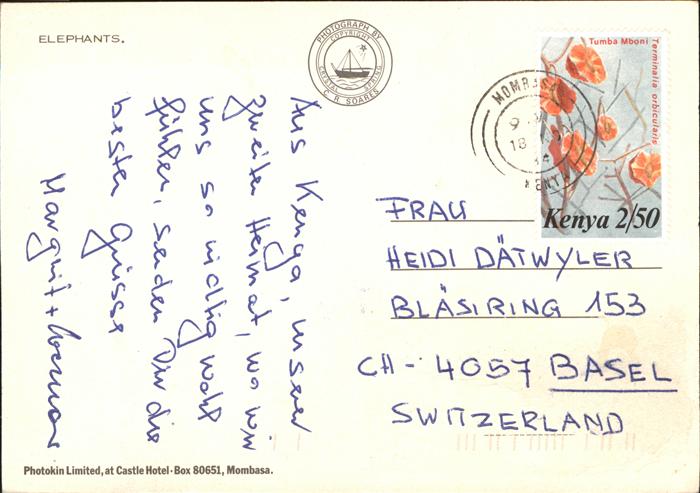 ELEPHANTS.
PHOTOGRAPH BY
COPYRIGHT
C R SOARES
Tumba Mboni
Terminalia orbicularis
Kenya 2/50
MOMBASA
KENYA
Aus Kenya, unserer
zweiten Heimat, wo wir
uns so richtig wohl
fühlen, senden Dir die
besten Grüsse
Margrit +
FRAU
HEIDI DÄTWYLER
BLÄSIRING 153
CH - 4057 BASEL
SWITZERLAND
Photokin Limited, at Castle Hotel · Box 80651, Mombasa.